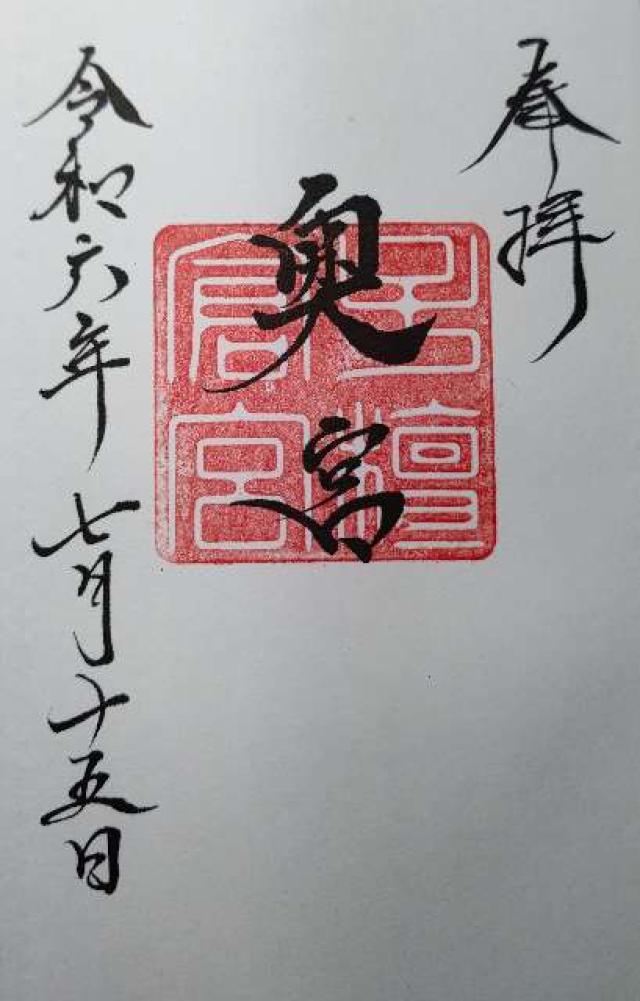 奉拝
奥宮
令和六年七月十五日